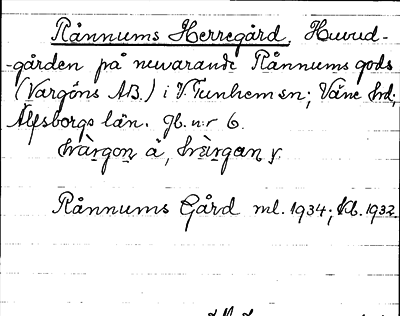 Rånnums Herregård. Huvud-
-gården på nuvarande Rånnums gods
(Vargöns A.B.) i V. Tunhem sn; Väne hd;
Älfsborgs län. Jb. n:r 6.
å, y.
Rånnums Gård ml. 1934; 1932